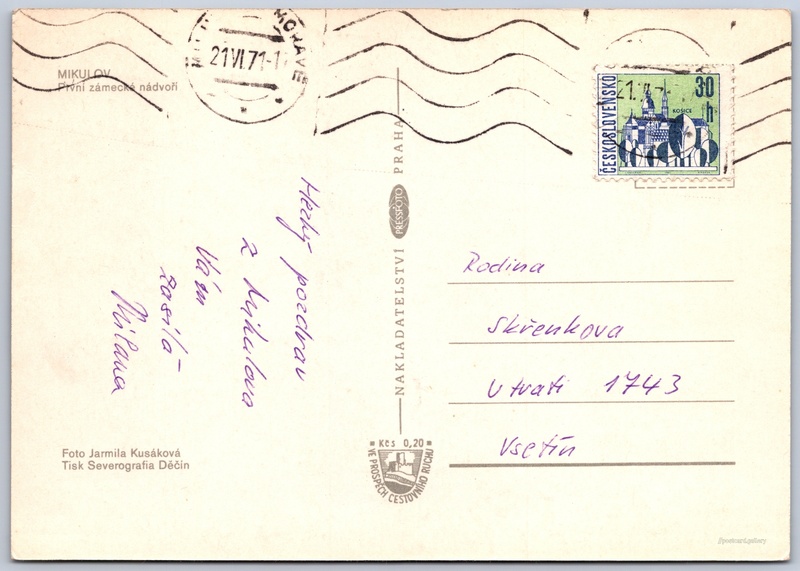 MIKULOV
První zámecké nádvoří
MORAVĚ
21.VI.71-1
ČESKOSLOVENSKO
30
h
KOŠICE
21.
Hezký pozdrav
z Mikulova
Vám
zasílá
Milana
NAKLADATELSTVÍ PRESSFOTO PRAHA
Rodina
Skřenkova
U trati 1743
Vsetín
Foto Jarmila Kusáková
Tisk Severografia Děčín
Kčs 0,20
VE PROSPĚCH CESTOVNÍHO RUCHU